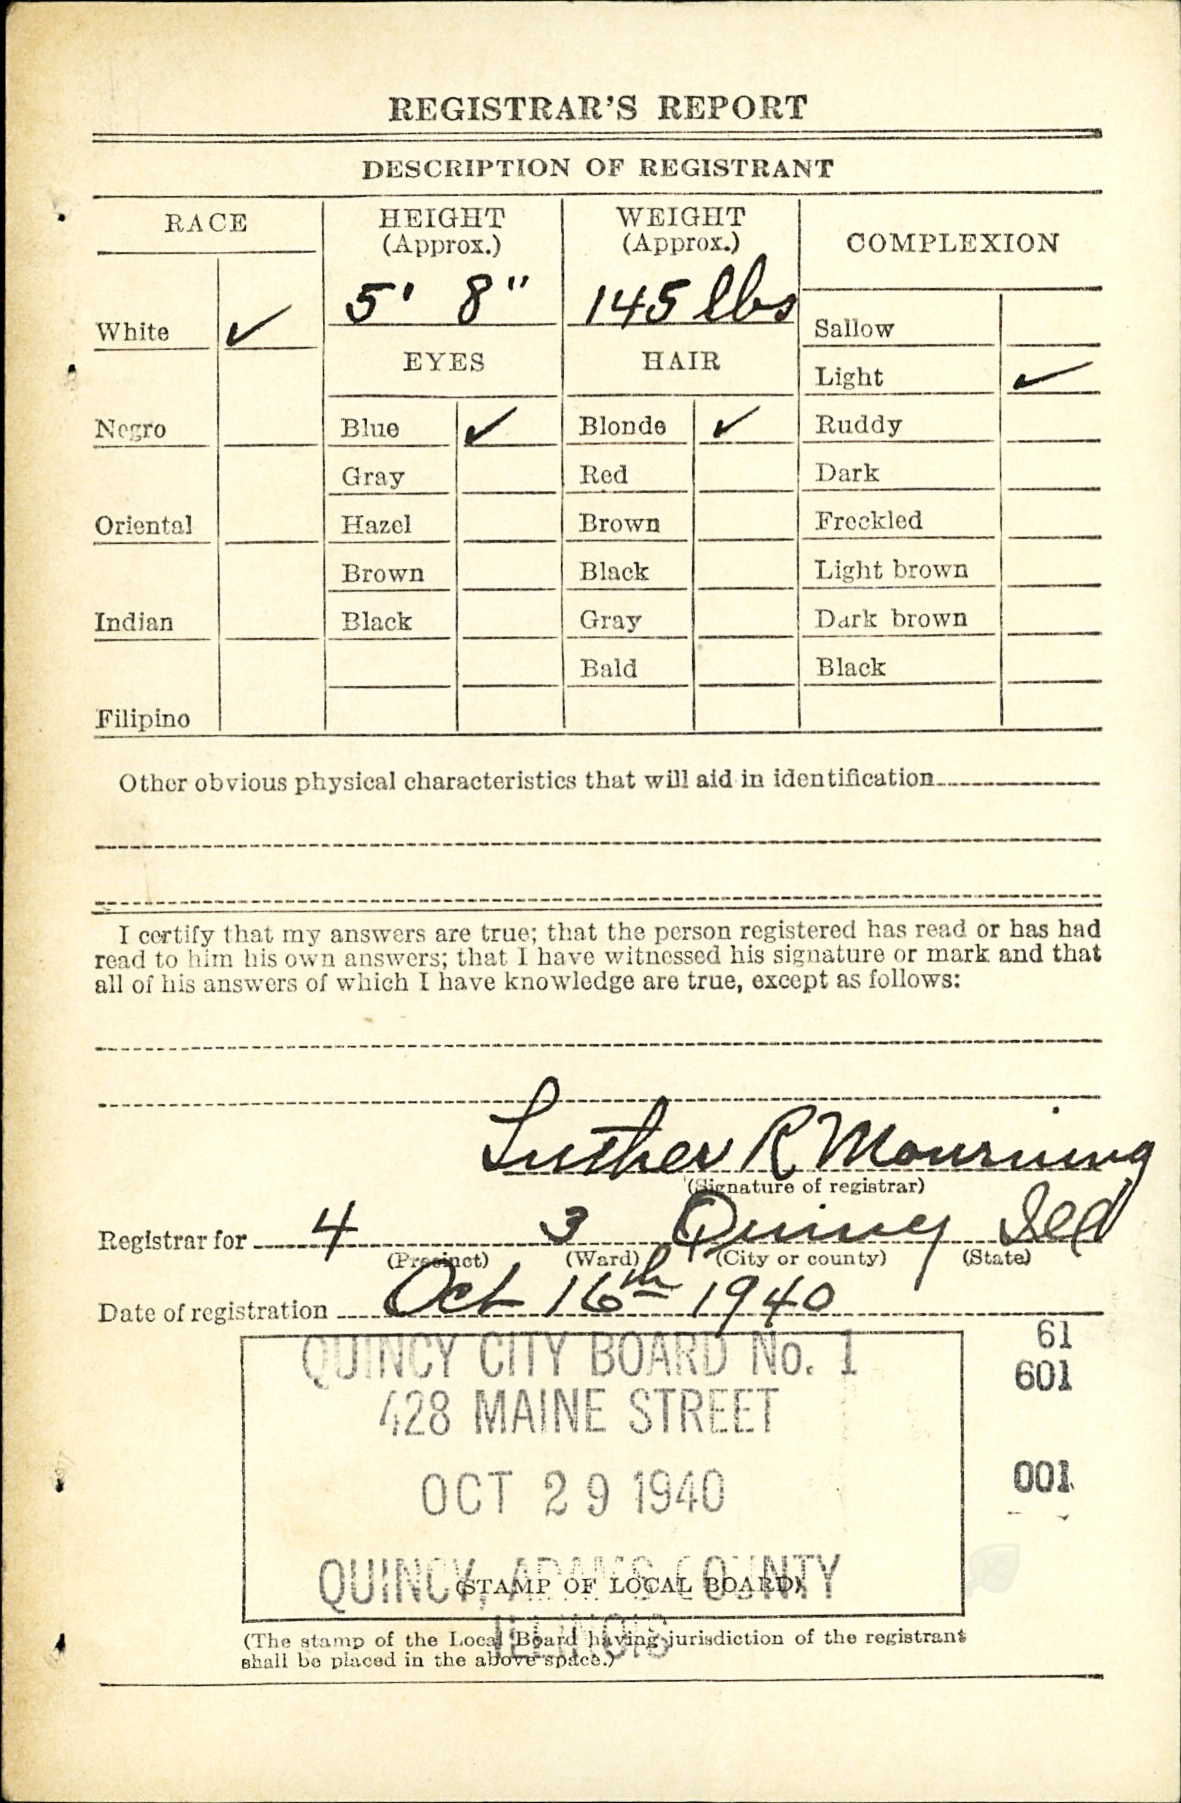 REGISTRAR'S REPORT
DESCRIPTION OF REGISTRANT
RACE HEIGHT (Approx.) WEIGHT (Approx.) COMPLEXION
5' 8" 145 lbs
White ✓ EYES HAIR Sallow
Light ✓
Negro Blue ✓ Blonde ✓ Ruddy
Gray Red Dark
Oriental Hazel Brown Freckled
Brown Black Light brown
Indian Black Gray Dark brown
Bald Black
Filipino
Other obvious physical characteristics that will aid in identification
I certify that my answers are true; that the person registered has read or has had
read to him his own answers; that I have witnessed his signature or mark and that
all of his answers of which I have knowledge are true, except as follows:
Luther R Mourning
(Signature of registrar)
Registrar for 4 3 Quincy Ill
(Precinct) (Ward) (City or county) (State)
Date of registration Oct 16th 1940
QUINCY CITY BOARD No. 1
428 MAINE STREET
OCT 29 1940
QUINCY, ADAMS COUNTY
(STAMP OF LOCAL BOARD)
ILLINOIS
61
601
001
(The stamp of the Local Board having jurisdiction of the registrant
shall be placed in the above space.)